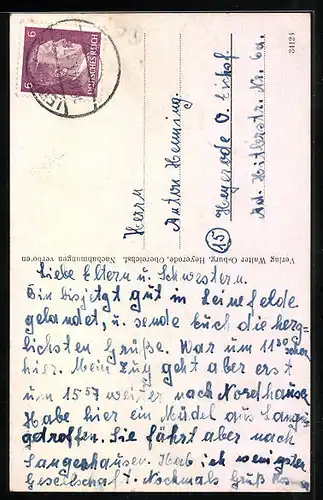 6
6
DEUTSCHES REICH
34124
Herrn
Anton Henning.
15 Heyerode O. Eichsf.
Ad. Hitlerstr. Nr. 6a.
Verlag Walter O-burg, Heyerode, Obereichsf. Nachahmungen verboten
Liebe Eltern u. Schwestern.
Bin bisjetzt gut in Leinefelde
gelandet, u. sende Euch die herz-
lichsten Grüße. War um 11 30 schon
hier. Mein Zug geht aber erst
um 15 57 weiter nach Nordhausen
Habe hier ein Mädel aus
getroffen. Sie fährt aber nach
Sangerhausen. Hab ich wenigstens
Gesellschaft. Nochmals Gruß